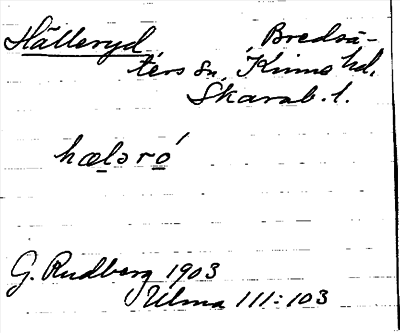 Hälleryd Bredsä-
ters sn, Kinne hd.
Skarab. l.
hæləró
G. Rudberg 1903
Ulma 111:103